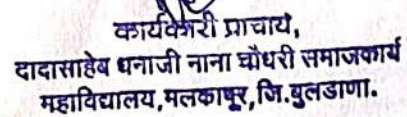 कार्यकारी प्राचार्य,
दादासाहेब धनाजी नाना चौधरी समाजकार्य
महाविद्यालय,मलकापूर,जि.बुलडाणा.